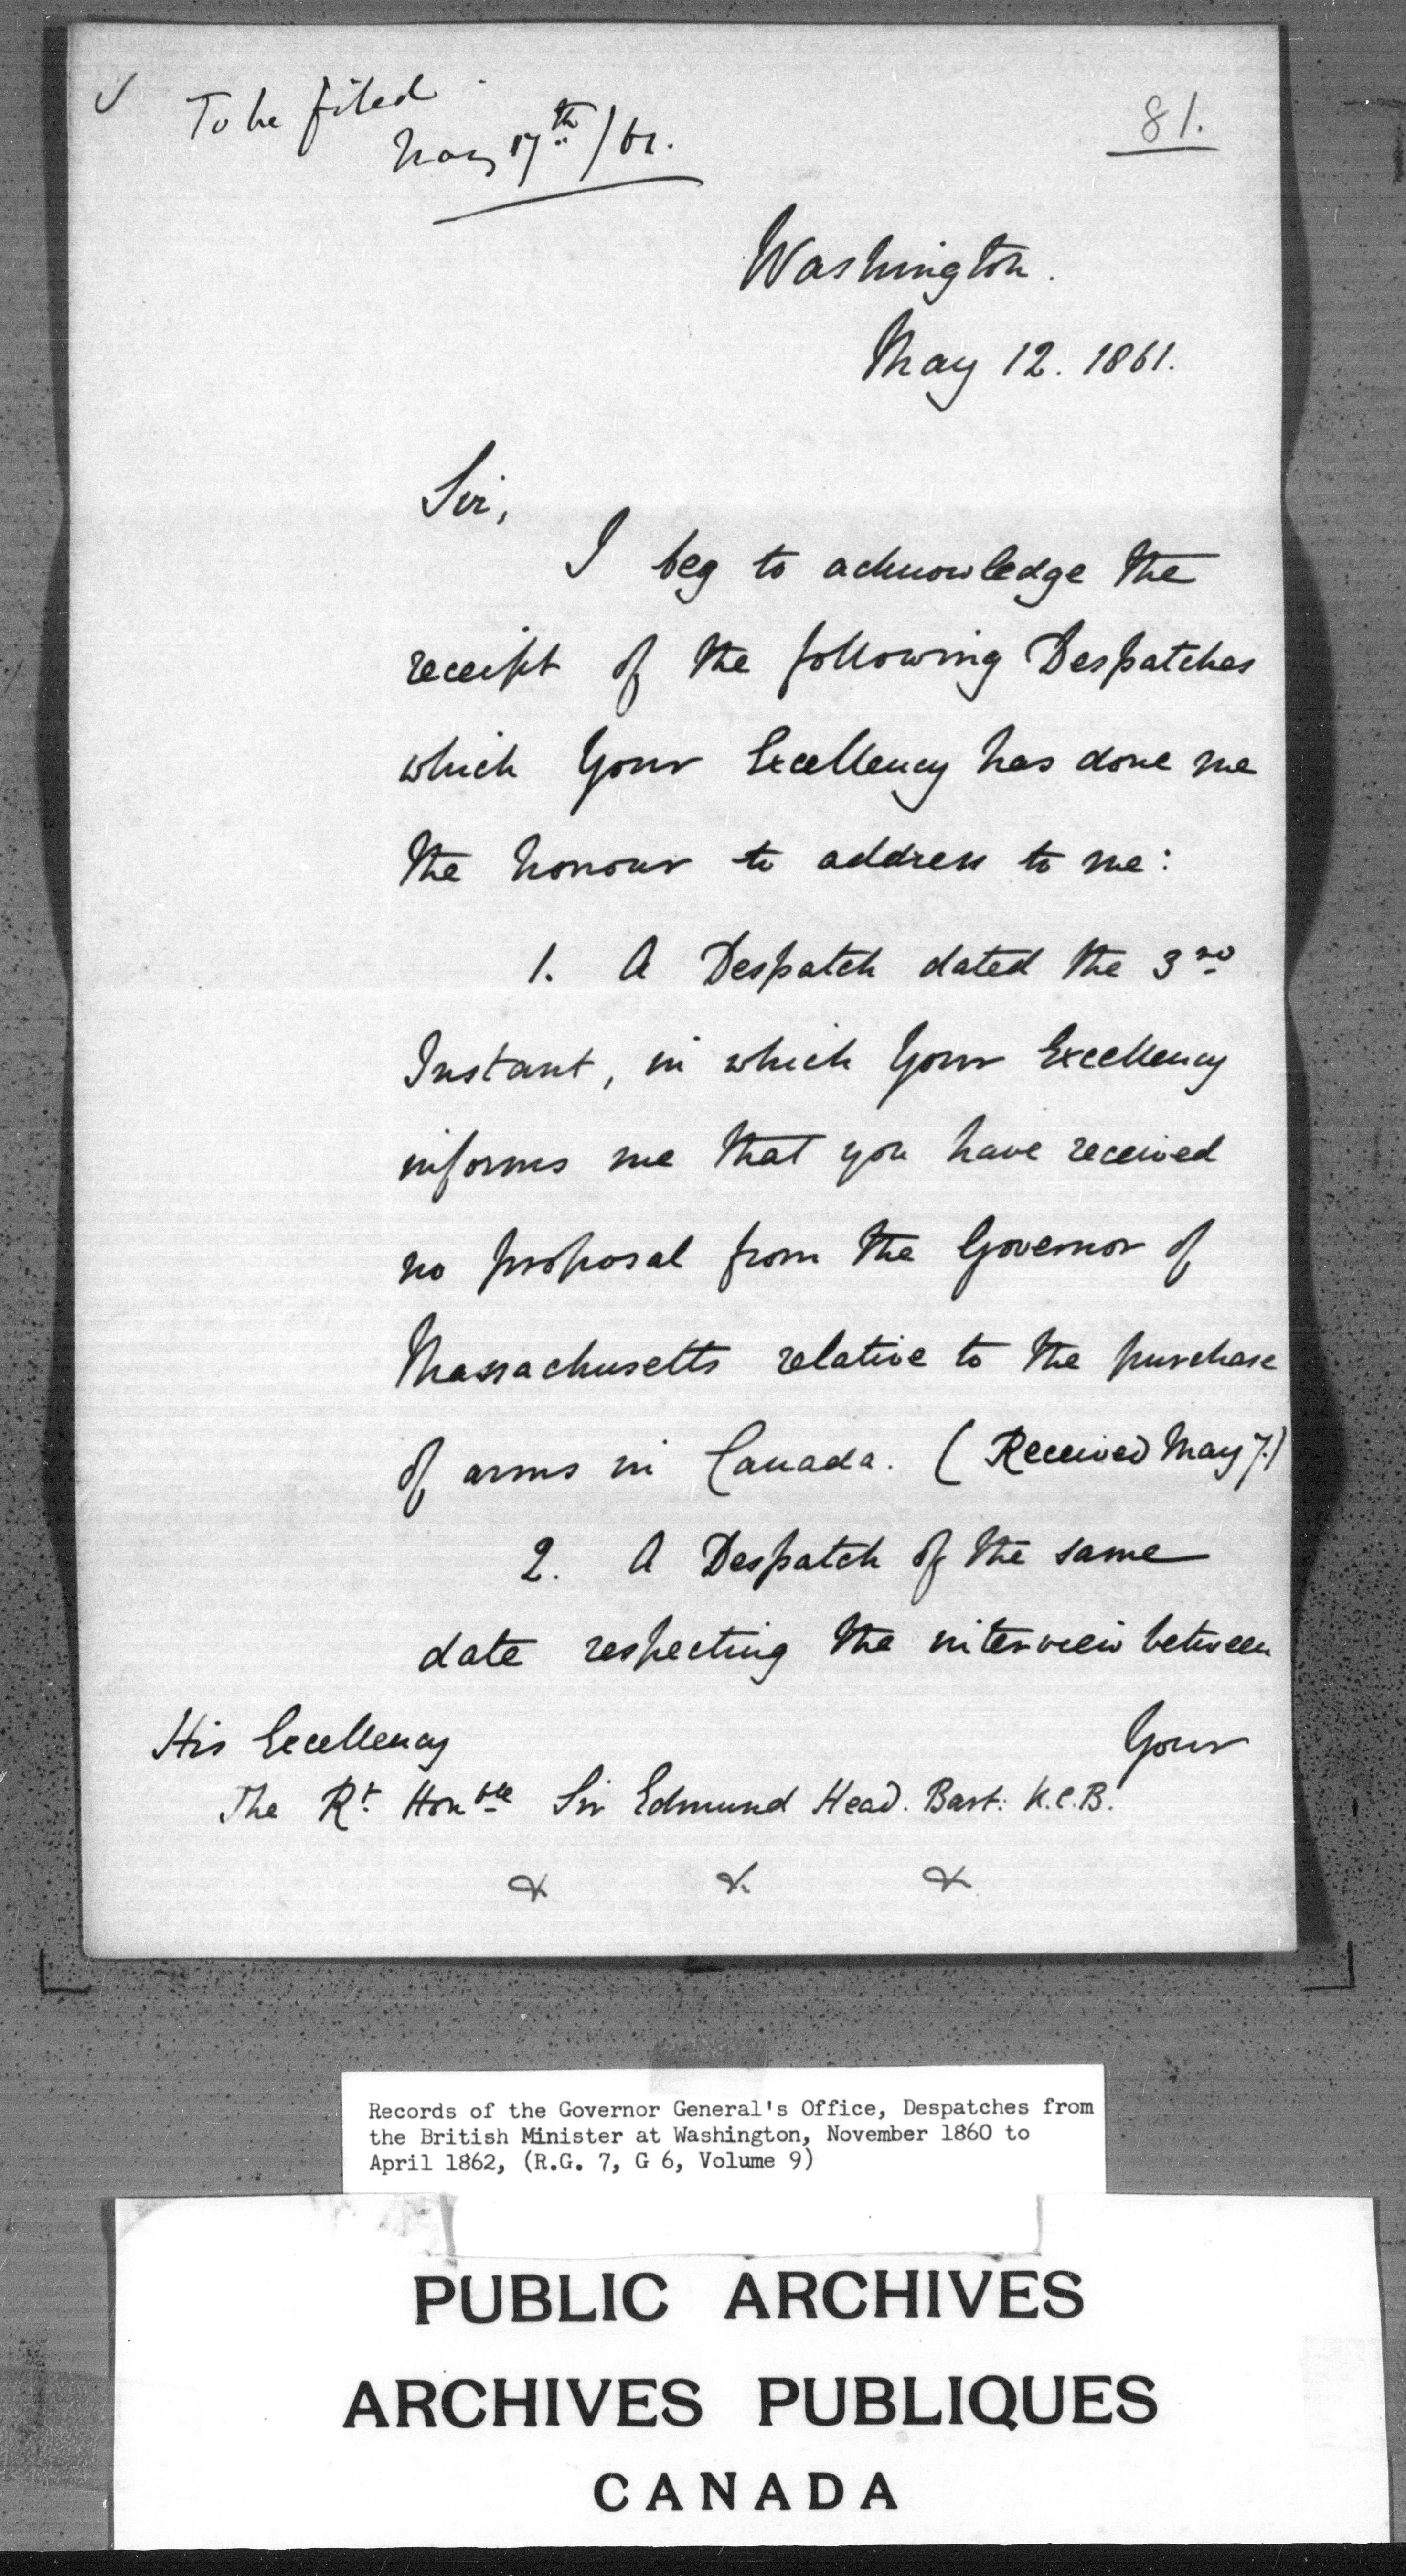 To be filed
May 17th / 61.
81.
Washington.
May 12. 1861.
Sir,
I beg to acknowledge the
receipt of the following Despatches
which Your Excellency has done me
the honour to address to me:
1. A Despatch dated the 3rd
Instant, in which Your Excellency
informs me that you have received
no proposal from the Governor of
Massachusetts relative to the purchase
of arms in Canada. (Received May 7.)
2. A Despatch of the same
date respecting the interview between
Your
His Excellency
The Rt. Honble Sir Edmund Head. Bart: K.C.B.
& & &
Records of the Governor General's Office, Despatches from
the British Minister at Washington, November 1860 to
April 1862, (R.G. 7, G 6, Volume 9)
PUBLIC ARCHIVES
ARCHIVES PUBLIQUES
CANADA